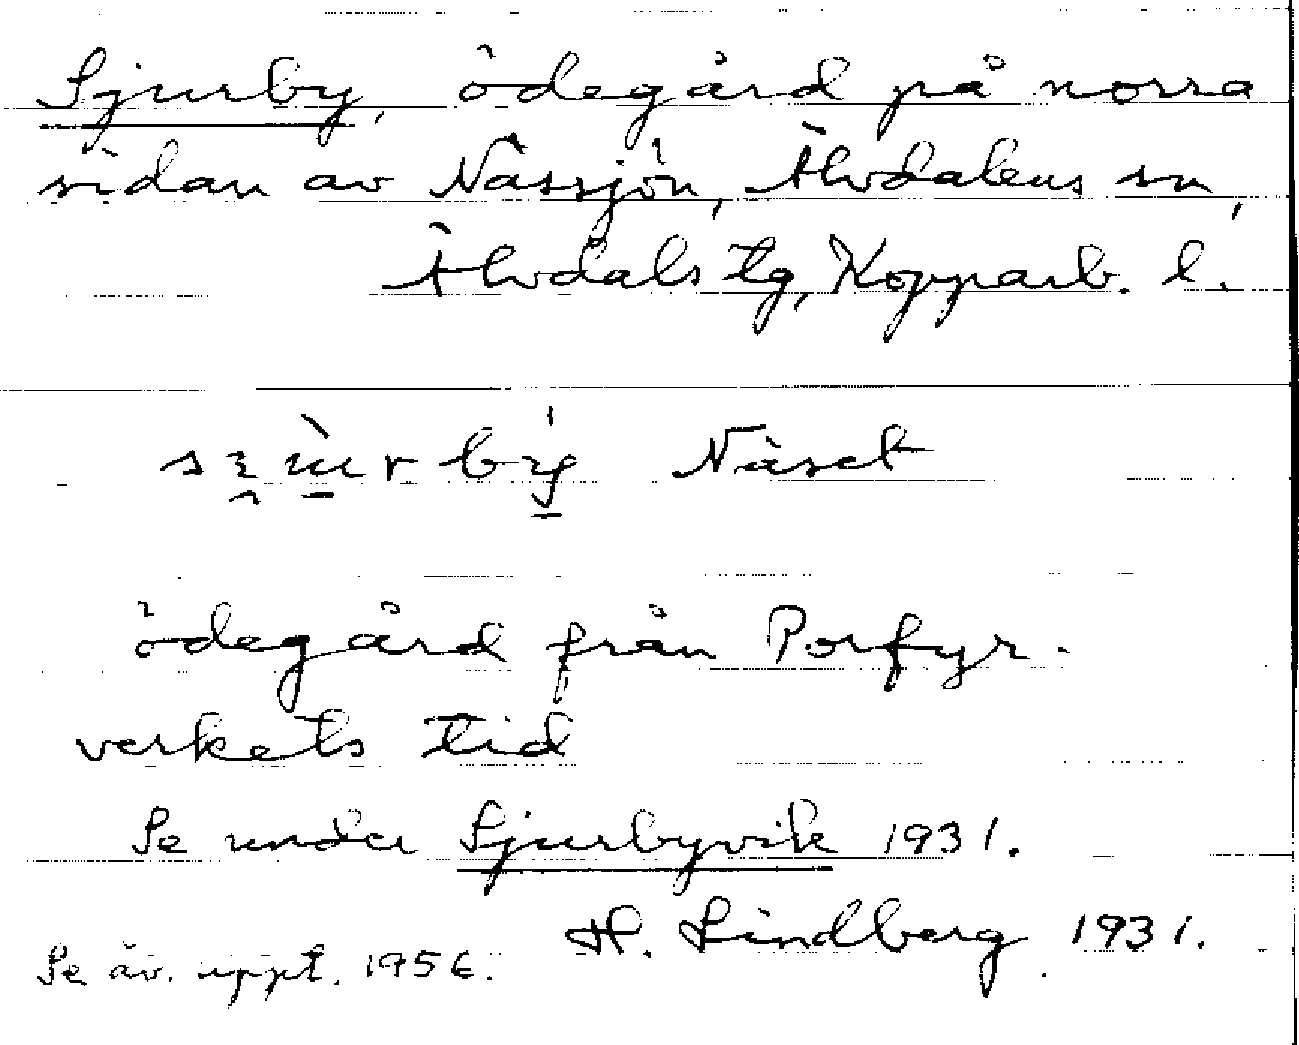 Sjurby, ödegård på norra
sidan av Nässjön, Älvdalens sn,
Älvdals tg, Kopparb. l.
Näset
ödegård från Porfyr-
verkets tid
Se under Sjurbyvik 1931.
H. Lindberg 1931.
Se äv. uppt. 1956.